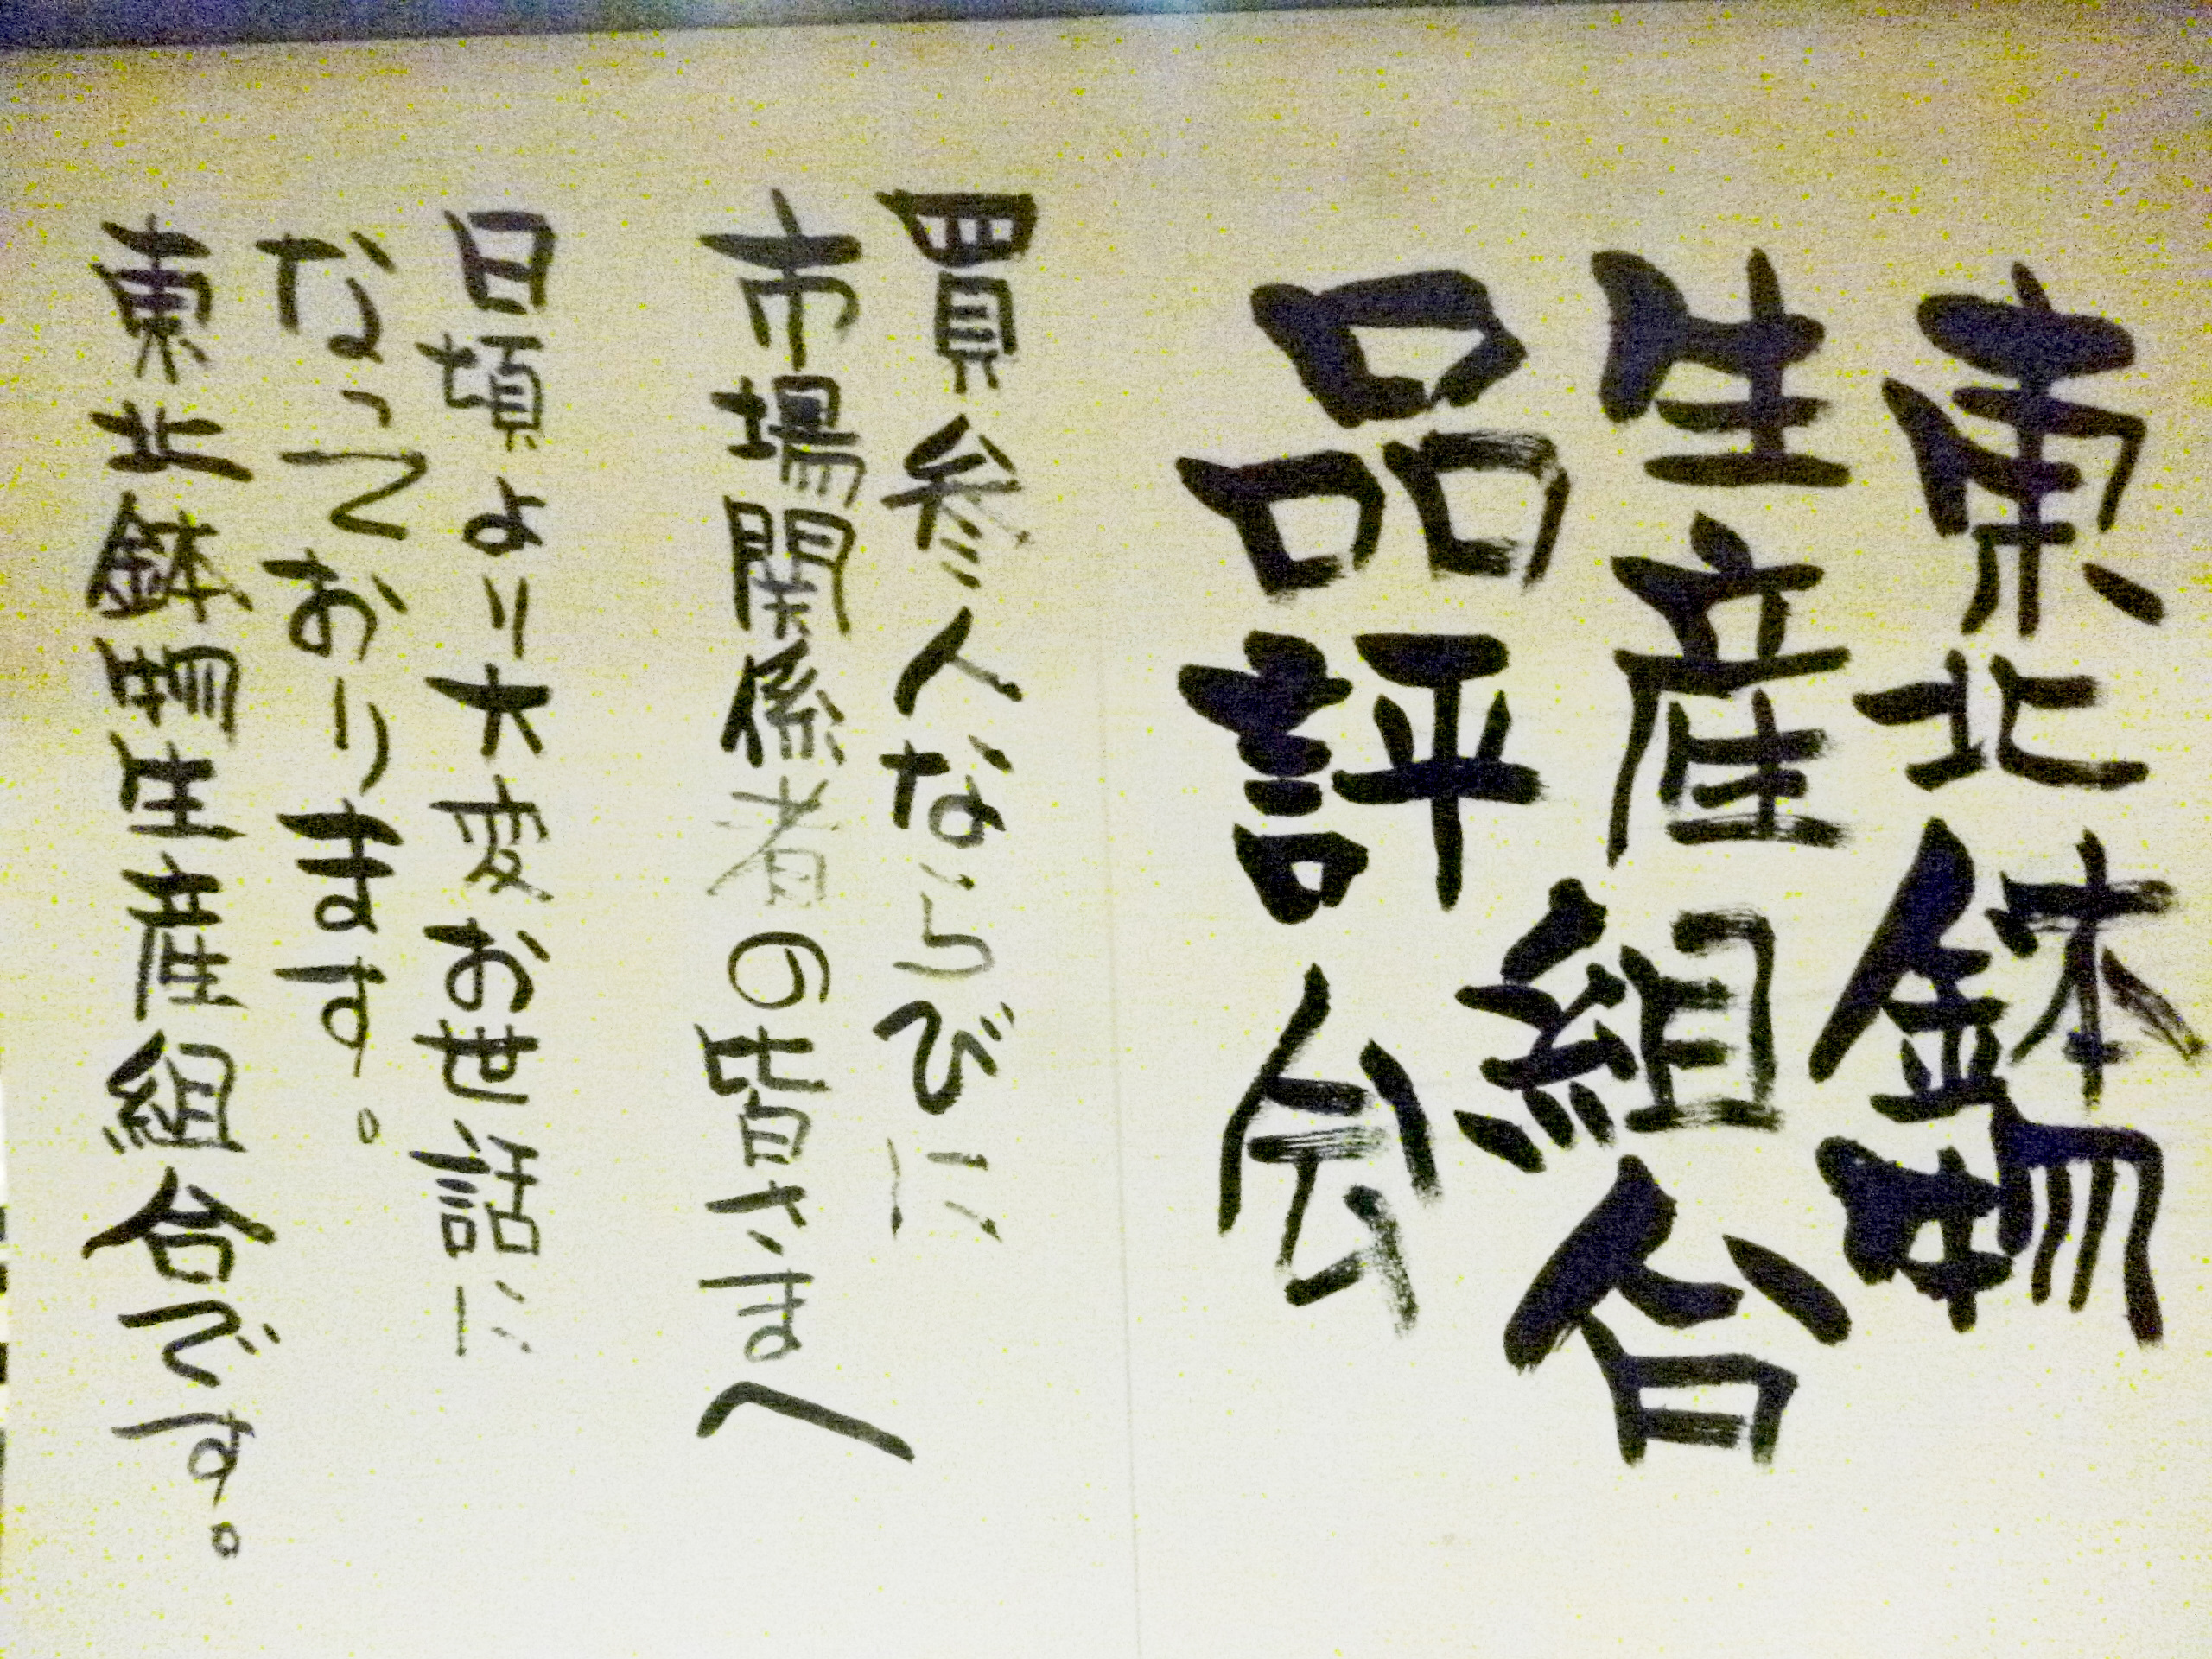 東北鉢物
生産組合
品評会
買参人ならびに
市場関係者の皆さまへ
日頃より大変お世話に
なっております。
東北鉢物生産組合です。